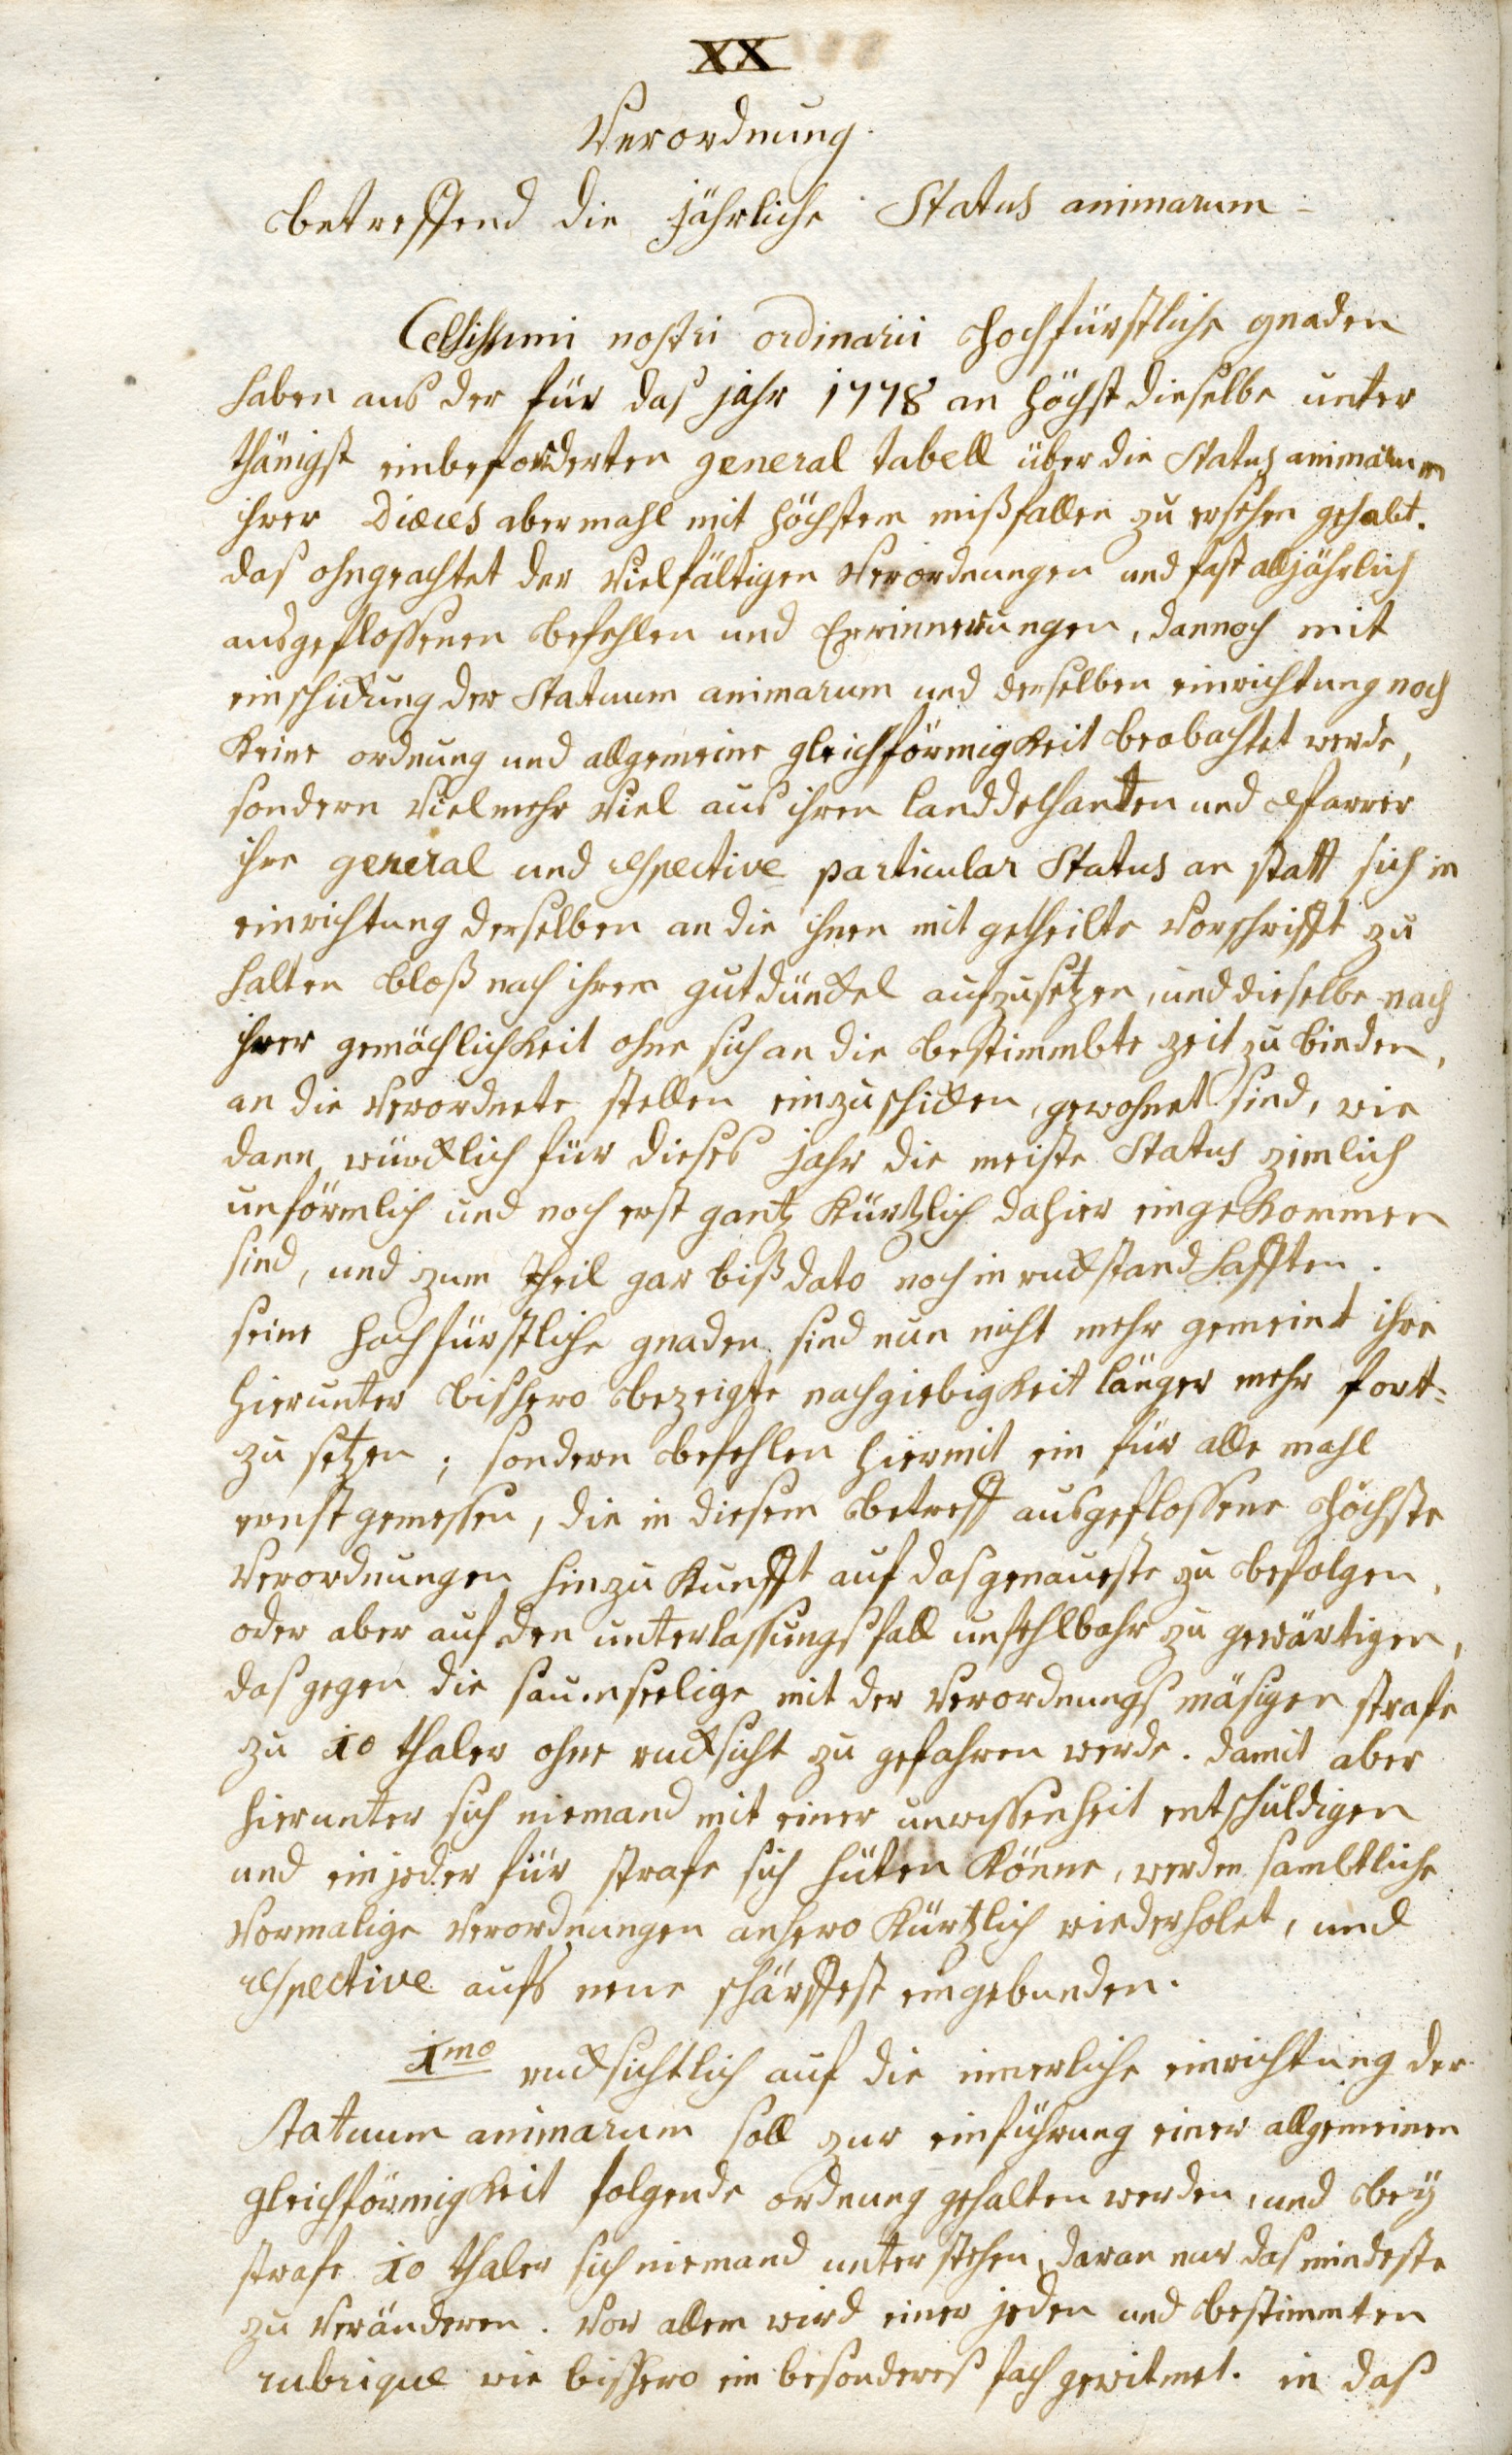 XX
Verordnung.
betreffend die jährliche Status animarum
Celsissimi nostri ordinarii Hochfürstliche gnaden
haben aus der für das jahr 1778 an höchst dieselbe unter
thänigst einbeforderten general tabell über die Status animarum
ihrer Diœces abermahl mit höchstem mißfallen zu ersehen gehabt.
das ohngeachtet der vielfältigen Verordnungen und fast alljährlich
ausgeflossenen befehlen und Erinnerungen, dannoch mit
einschickung der Statuum animarum und derselben einrichtung noch
keine ordnung und allgemeine gleichförmigkeit beobachtet werde,
sondern vielmehr viel aus ihren landdechanten und Pfarrer
ihre general und respective particular Status an statt sich in
einrichtung derselben an die ihnen mit getheilte vorschrifft zu
halten bloß nach ihrem gutdünckel aufzusetzen, und dieselbe nach
ihrer gemächlichkeit ohne sich an die bestimmbte zeit zu binden,
an die verordnete stellen einzuschicken, gewohnet sind, wie
dann würcklich für dieses jahr die meiste Status zimlich
unförmlich und noch erst gantz kürtzlich dahier eingekommen
sind, und zum theil gar biß dato noch in ruckstand hafften.
seine hochfürstliche gnaden sind nun nicht mehr gemeint ihre
hierunter bishero bezeigte nachgiebigkeit länger mehr fort=
zu setzen; sondern befehlen hiermit ein für alle mahl
ernst gemessen, die in diesem betreff ausgeflossene höchste
Verordnungen hinzukunfft auf das genaueste zu befolgen,
oder aber auf den unterlassungsfall unfehlbahr zu gewärtigen,
das gegen die saumseelige mit der verordnungs mäsigen strafe
zu 10 thaler ohne rucksicht zu gefahren werde. damit aber
hierunter sich niemand mit einer unwissenheit entschuldigen
und ein jeder für strafe sich hüten könne, werden sambtliche
vormalige Verordnungen anhero kürtzlich wiederholet, und
respective aufs neue schärffest eingebunden.
1mo rucksichtlich auf die innerliche einrichtung der
Statuum animarum soll zur einführung einer allgemeinen
gleichförmigkeit folgende ordnung gehalten werden, und beÿ
strafe 10 thaler sich niemand unterstehen, daran nur das mindeste
zu veränderen. vor allem wird einer jeden und bestimmten
rubrique wie bishero ein besonderes fach gewitmet. in das